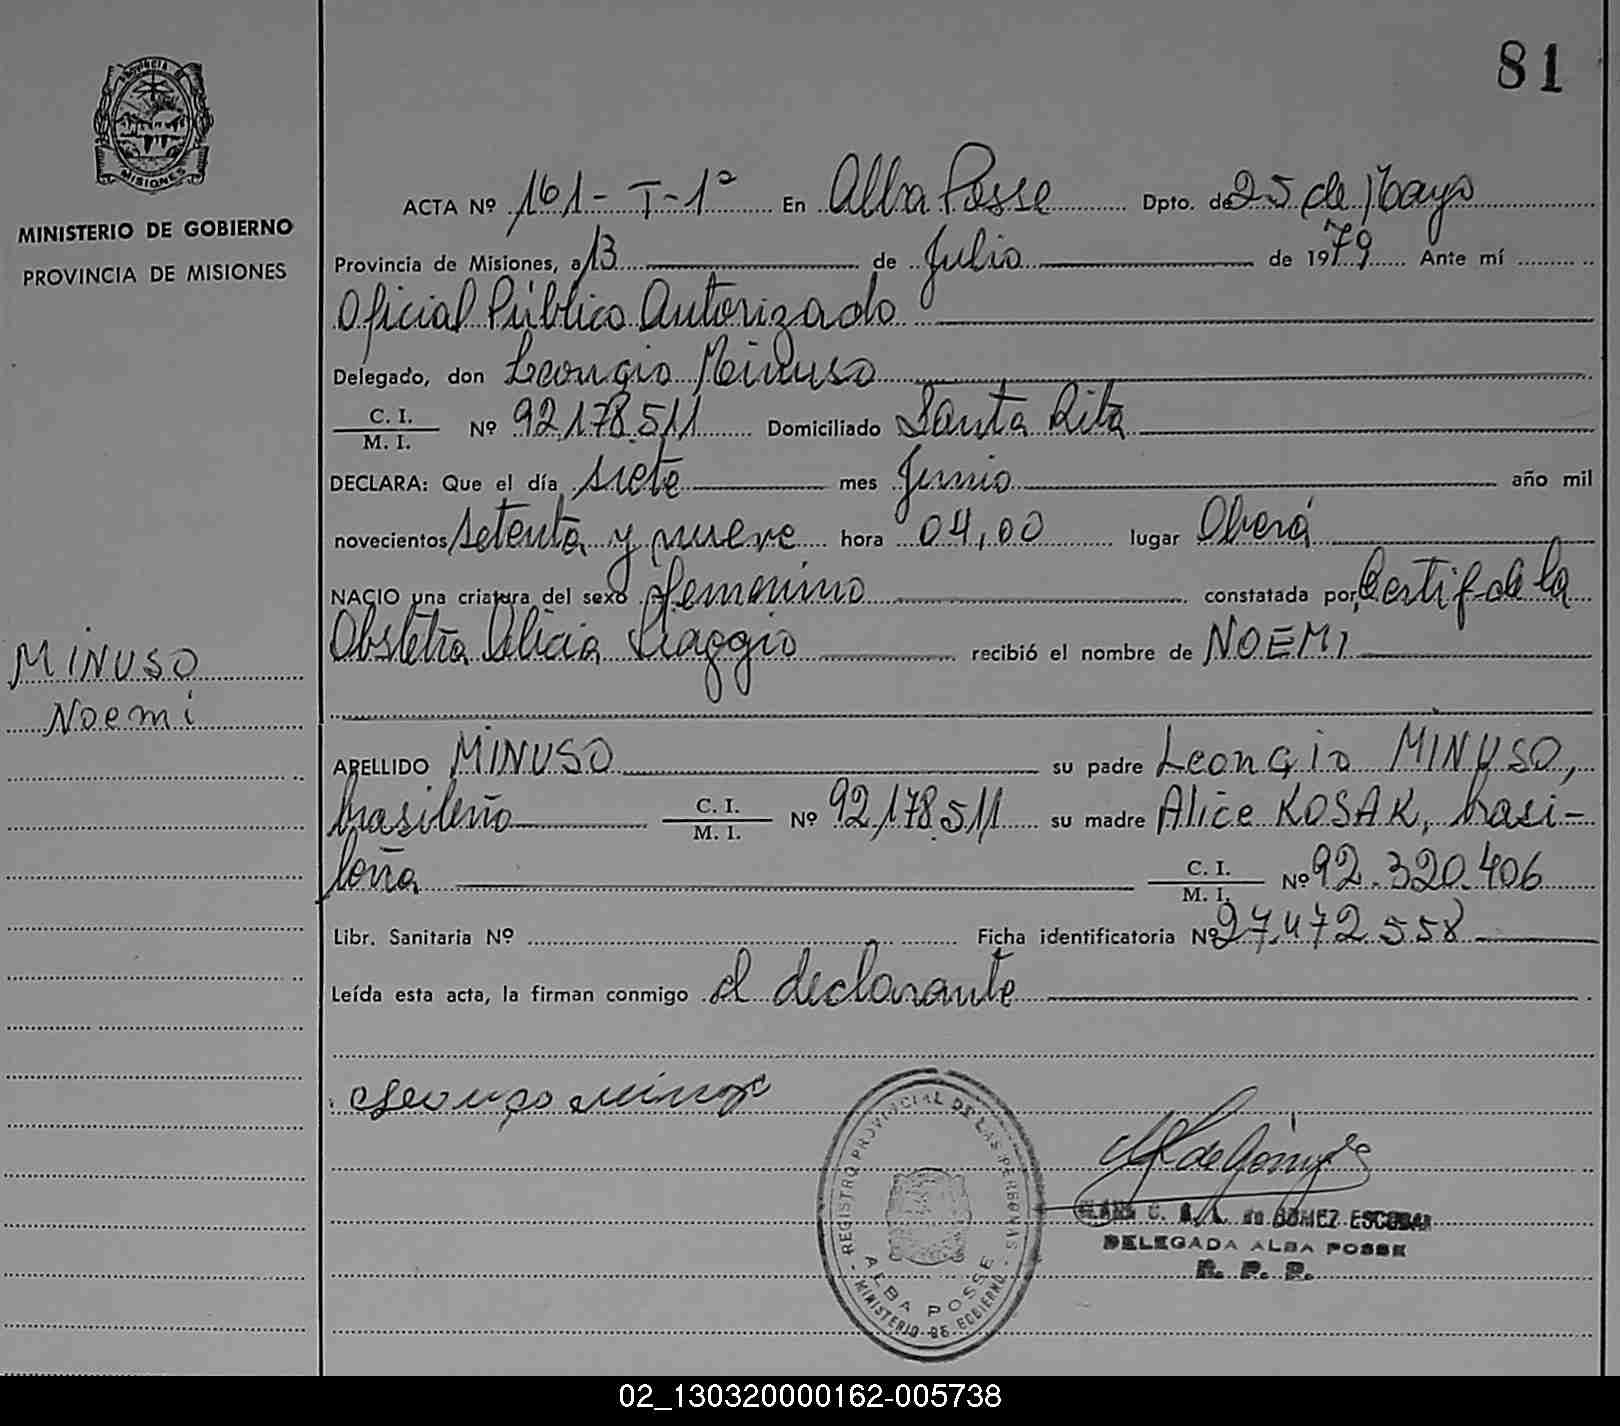 81
PROVINCIA DE
MISIONES
MINISTERIO DE GOBIERNO
PROVINCIA DE MISIONES
ACTA Nº 161 - T - 1ª En Alba Posse Dpto. de 25 de Mayo
Provincia de Misiones, a 13 de Julio de 1979 Ante mí
Oficial Público Autorizado
Delegado, don Leongio Minuso
C. I. / M. I. Nº 92.178.511 Domiciliado Santa Rita
DECLARA: Que el día siete mes Junio año mil
novecientos setenta y nueve hora 04,00 lugar Oberá
NACIO una criatura del sexo femenino constatada por Certif de la
Obstetra Alicia recibió el nombre de NOEMI
MINUSO
Noemi
APELLIDO MINUSO su padre Leongio MINUSO,
brasileño C. I. / M. I. Nº 92.178.511 su madre Alice KOSAK, brasi-
leña C. I. / M. I. Nº 92.320.406
Libr. Sanitaria Nº Ficha identificatoria Nº 27.472.558
Leída esta acta, la firman conmigo el declarante
REGISTRO PROVINCIAL DE LAS PERSONAS
ALBA POSSE
- MINISTERIO DE GOBIERNO -
de GOMEZ ESCOBAR
DELEGADA ALBA POSSE
R. P. P.
02_130320000162-005738